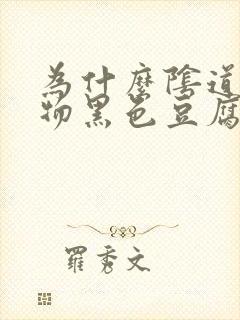 為什麼陰道
物黑色豆腐
羅秀文